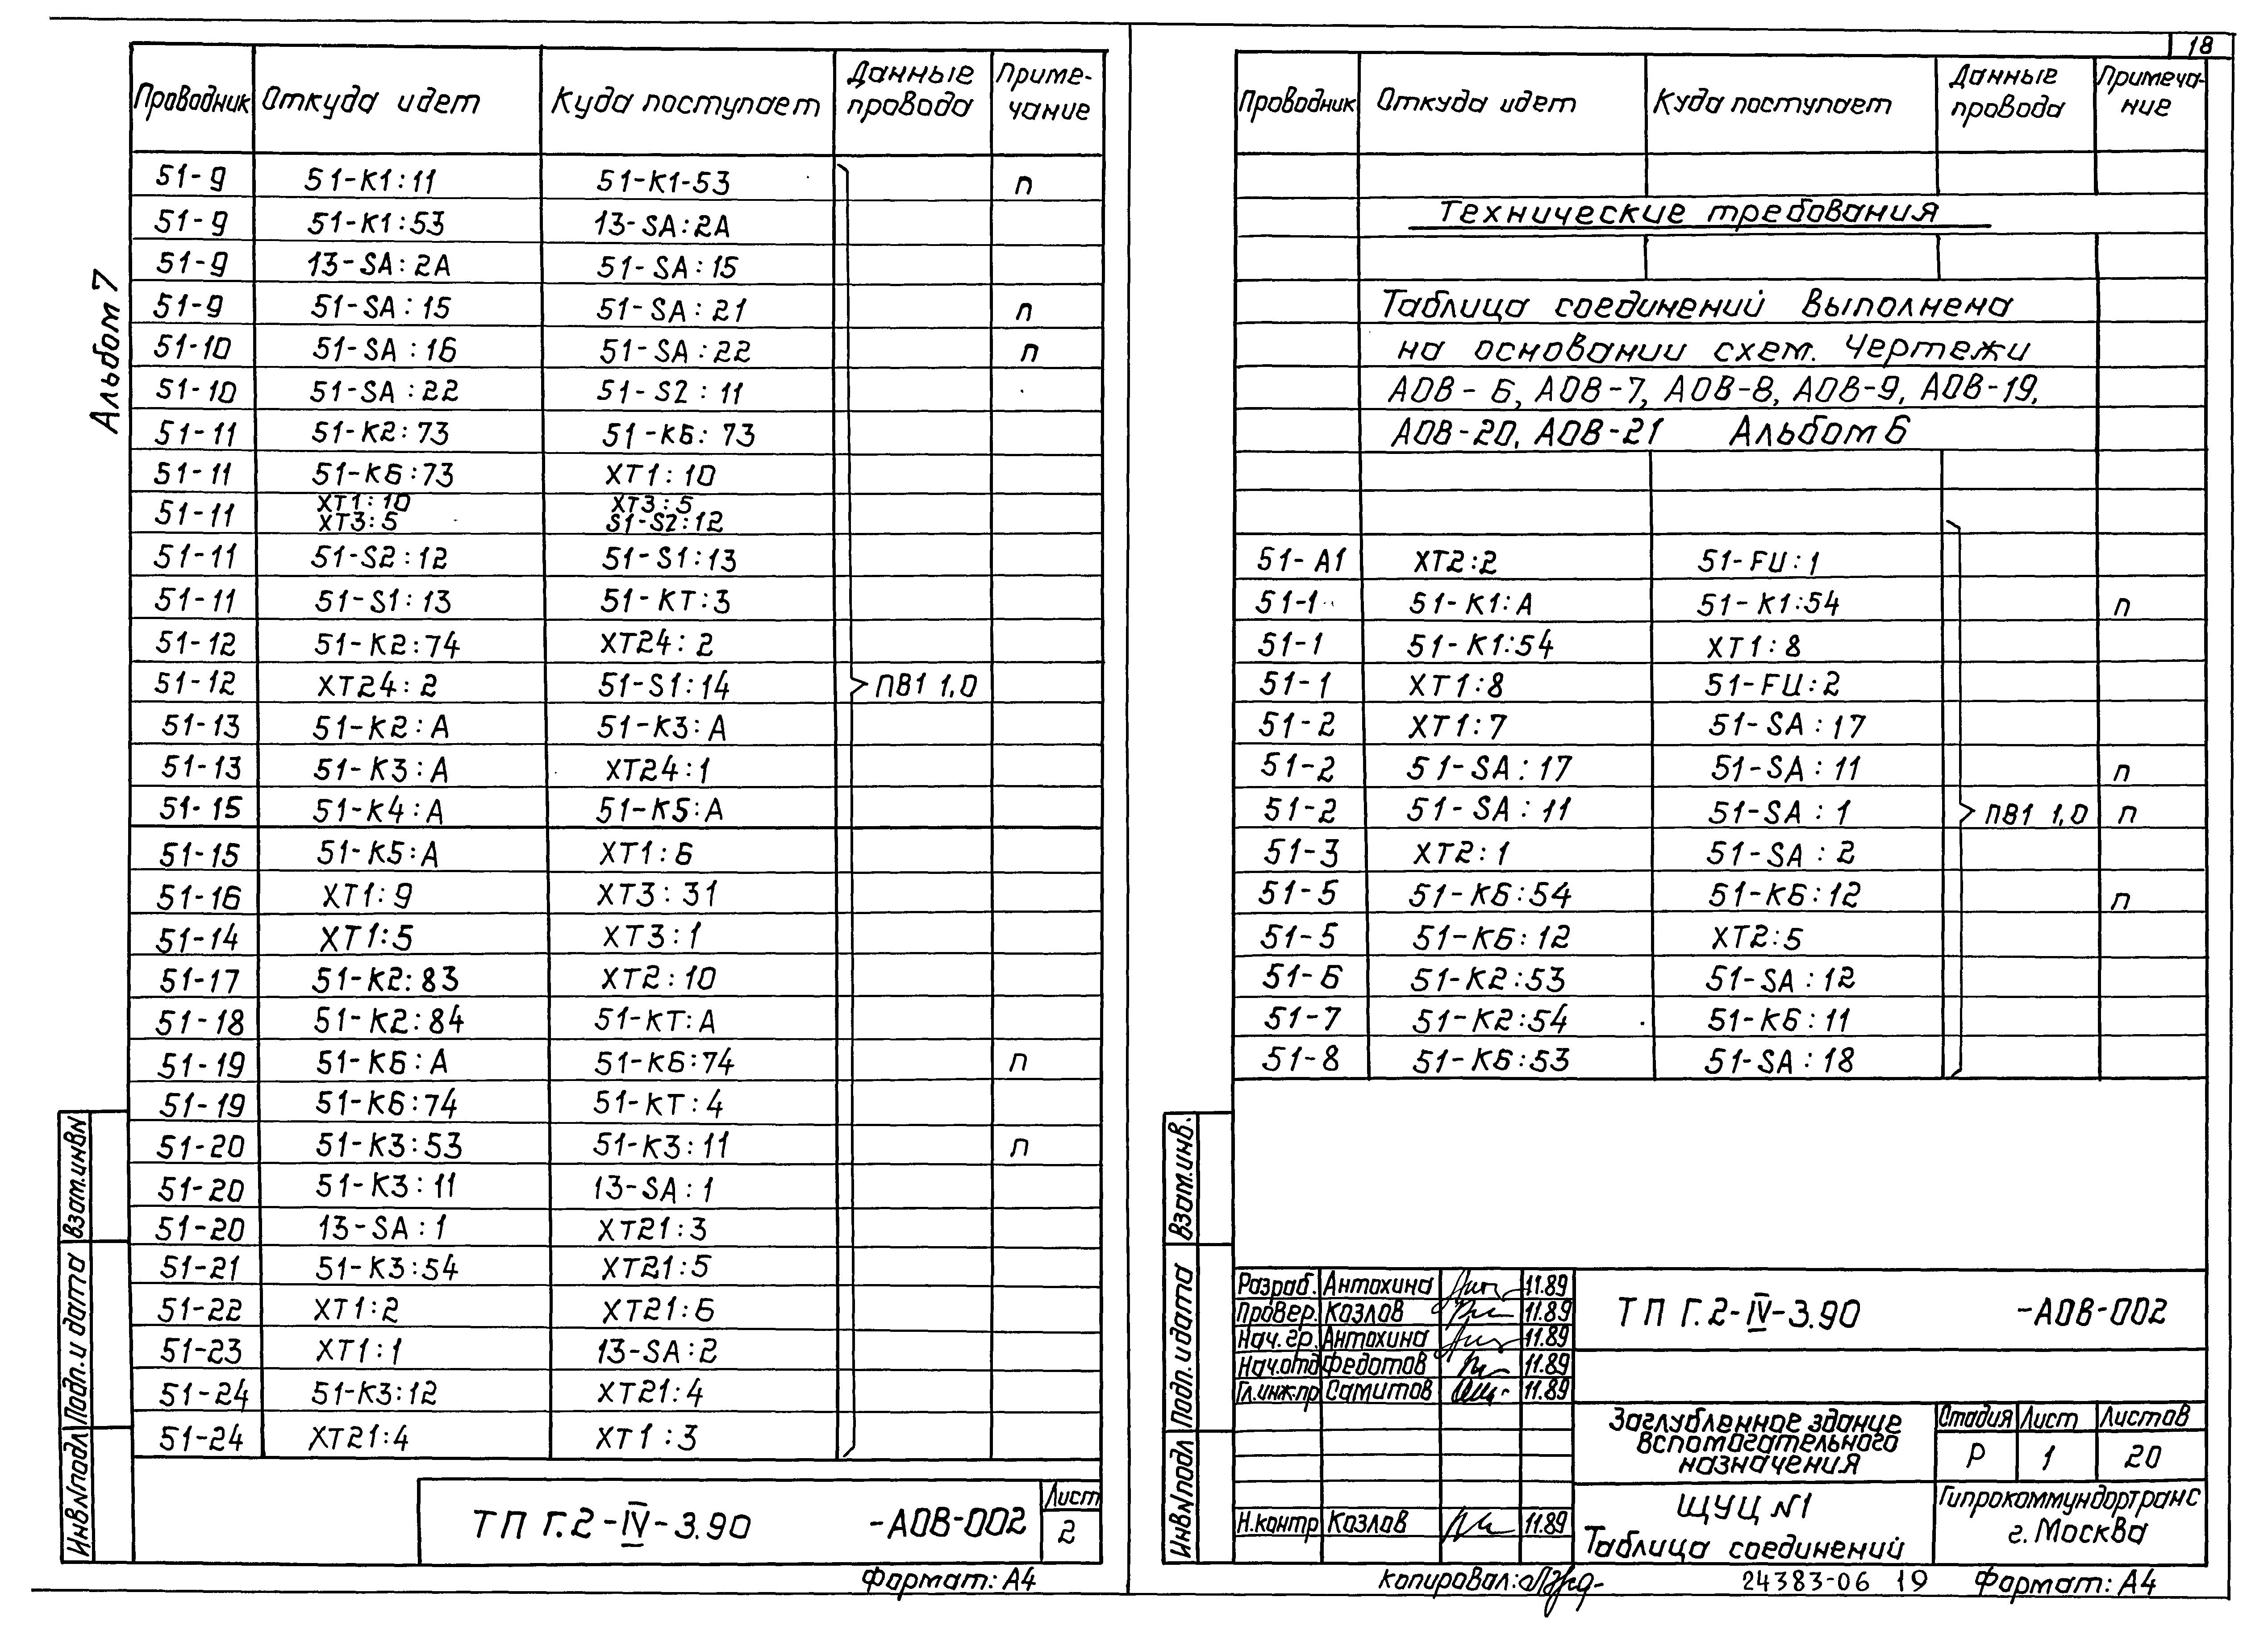 Альбом 7
Проводник Откуда идет Куда поступает Данные провода Примечание
51-9 51-К1:11 51-К1-53 п
51-9 51-К1:53 13-SA:2А
51-9 13-SA:2А 51-SA:15
51-9 51-SA:15 51-SA:21 п
51-10 51-SA:16 51-SA:22 п
51-10 51-SA:22 51-S2:11
51-11 51-К2:73 51-К6:73
51-11 51-К6:73 ХТ1:10
51-11 ХТ1:10 ХТ3:5
ХТ3:5 S1-S2:12
51-11 51-S2:12 51-S1:13
51-11 51-S1:13 51-КТ:3
51-12 51-К2:74 ХТ24:2
51-12 ХТ24:2 51-S1:14 ПВ1 1,0
51-13 51-К2:А 51-К3:А
51-13 51-К3:А ХТ24:1
51-15 51-К4:А 51-К5:А
51-15 51-К5:А ХТ1:6
51-16 ХТ1:9 ХТ3:31
51-14 ХТ1:5 ХТ3:1
51-17 51-К2:83 ХТ2:10
51-18 51-К2:84 51-КТ:А
51-19 51-К6:А 51-К6:74 п
51-19 51-К6:74 51-КТ:4
51-20 51-К3:53 51-К3:11 п
51-20 51-К3:11 13-SA:1
51-20 13-SA:1 ХТ21:3
51-21 51-К3:54 ХТ21:5
51-22 ХТ1:2 ХТ21:6
51-23 ХТ1:1 13-SA:2
51-24 51-К3:12 ХТ21:4
51-24 ХТ21:4 ХТ1:3
Взам.инвN
Подп. и дата
ИнвNподл
ТП Г.2-IV-3.90 -АОВ-002
Лист
2
Формат: А4
18
Проводник Откуда идет Куда поступает Данные провода Примечание
Технические требования
Таблица соединений выполнена
на основании схем. Чертежи
АОВ-6, АОВ-7, АОВ-8, АОВ-9, АОВ-19,
АОВ-20, АОВ-21 Альбом 6
51-А1 ХТ2:2 51-FU:1
51-1 51-К1:А 51-К1:54 п
51-1 51-К1:54 ХТ1:8
51-1 ХТ1:8 51-FU:2
51-2 ХТ1:7 51-SA:17
51-2 51-SA:17 51-SA:11 п
51-2 51-SA:11 51-SA:1 ПВ1 1,0 п
51-3 ХТ2:1 51-SA:2
51-5 51-К6:54 51-К6:12 п
51-5 51-К6:12 ХТ2:5
51-6 51-К2:53 51-SA:12
51-7 51-К2:54 51-К6:11
51-8 51-К6:53 51-SA:18
Взам.инв.
Подп. и дата
ИнвNподл
Разраб. Антохина 11.89
Провер. Козлов 11.89
Нач.гр. Антохина 11.89
Нач.отд Федотов 11.89
Гл.инж.пр Самитов 11.89
Н.контр Козлов 11.89
ТП Г.2-IV-3.90 -АОВ-002
Заглубленное здание
вспомогательного
назначения
Стадия Лист Листов
Р 1 20
ЩУЦ N1
Таблица соединений
Гипрокоммундортранс
г. Москва
Копировал:
24383-06 19
Формат: А4